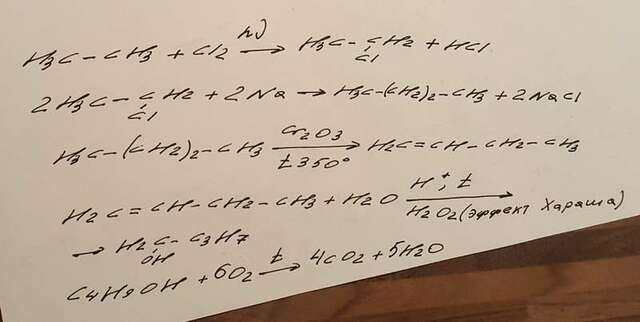 H3C-CH3 + Cl2 hν→ H3C-CH2 + HCl
Cl
2H3C-CH2 + 2Na → H3C-(CH2)2-CH3 + 2NaCl
Cl
H3C-(CH2)2-CH3 Cr2O3 → H2C=CH-CH2-CH3
t 350°
H2C=CH-CH2-CH3 + H2O H+, t →
H2O2 (эффект Хараша)
→ H2C-C3H7
OH
C4H9OH + 6O2 t→ 4CO2 + 5H2O